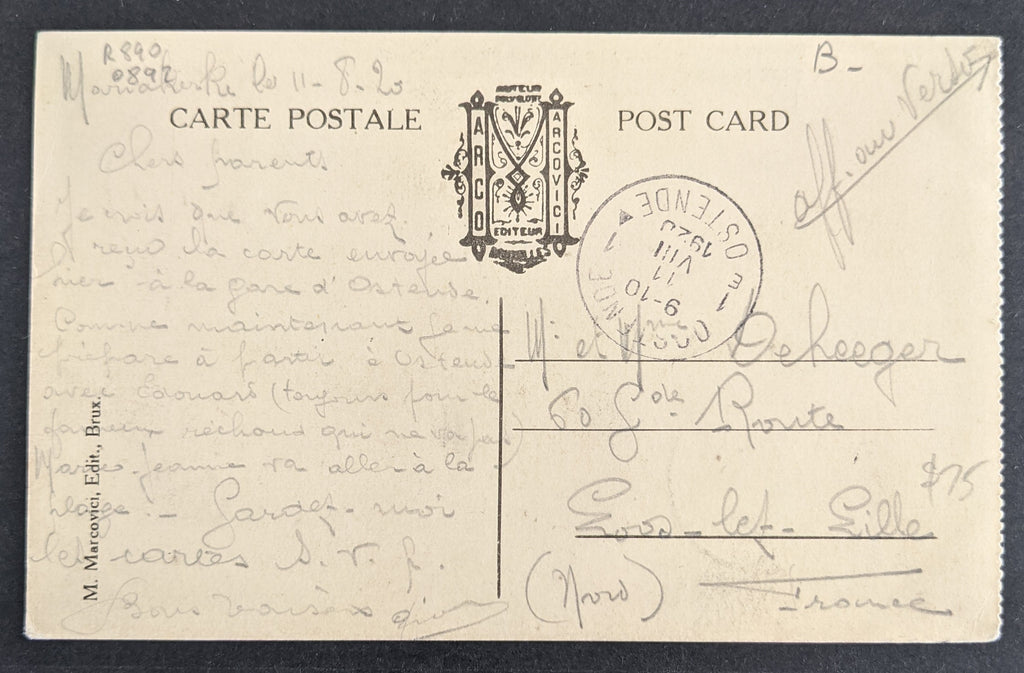 R890
0892
B-
aff. au Verso
Mariakerke le 11-8-20
CARTE POSTALE
POST CARD
AUTEUR
POLYGLOTT
ARCO
ARCOVICI
EDITEUR
BRUXELLES
OOSTENDE 1
1E OSTENDE 1
9-10
11
VIII
1920
Chers parents
Je crois que vous avez
reçu la carte envoyée
hier à la gare d'Ostende.
Comme maintenant je me
prépare à partir à Ostende
avec Edouard (toujours pour le
fameux réchaud qui ne va pas)
Marie-Jeanne va aller à la
plage. - Gardez-moi
les cartes S.V.P.
Bons baisers
M. Marcovici, Edit., Brux.
Mr et Mme Deheeger
60 Gde Route
$75
Loos-lez-Lille
(Nord)
France